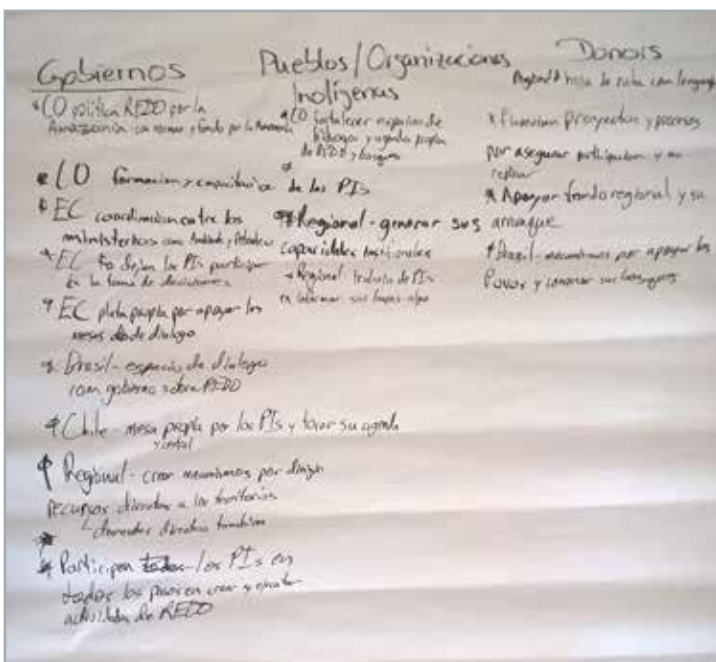 Gobiernos
*CO politica REDD por la
Amazonia con normas y fondo por la Amazonia
*CO formacion y capacitacion de los PIs
*EC coordinacion entre los
ministerios como Ambiente y
*EC dejen los PIs participar
en la toma de decisiones
*EC plata propia por apoyar los
mesas de dialogo
*Brasil - espacio de dialogo
con gobierno sobre REDD
*Chile - mesa propia por los PIs y tocar su agenda
y central
*Regional - crear mecanismos por dirigir
recursos directos a los territorios
directos
*Participen todos los PIs en
todos los pasos en crear y ejecutar
actividades de REDD
Pueblos/Organizaciones
Indígenas
*CO fortalecer
y agenda propia
de REDD y bosques
*Regional - generar sus
capacidades nacionales
*Regional trabajo de PIs
en informar sus bases
Donors
hoja de ruta con
*Financian proyectos y procesos
por asegurar participacion y no
*Apoyar fondo regional y su
arranque
*Brasil - mecanismos por apoyar los
Povos y sus bosques